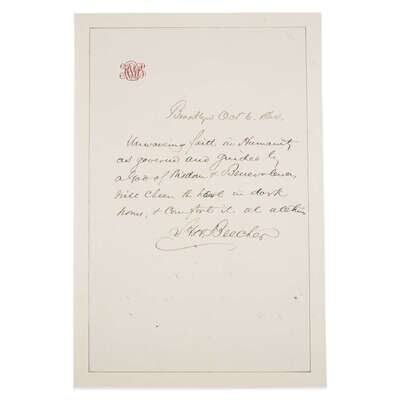 Brooklyn Oct 6,
Unwavering faith in Humanity
as governed and guided by
a God of Wisdom & Benevolence,
will cheer the heart in dark
hours, & comfort it at all
Beecher